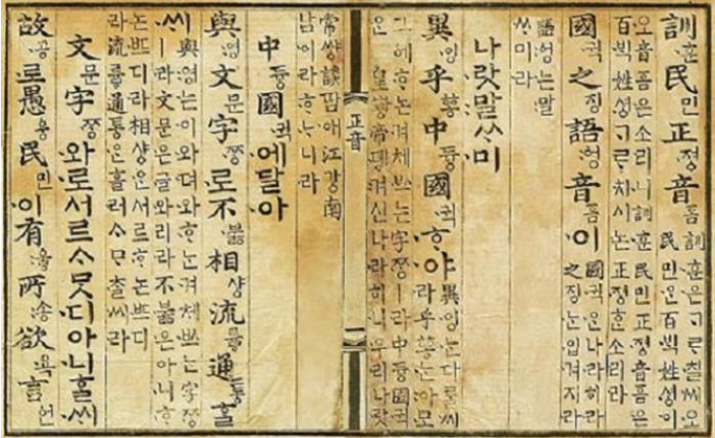 訓훈民민正졍音ᅙᅳᆷ訓훈은ᄀᆞᄅᆞ칠씨오民민ᄋᆞᆫ百ᄇᆡᆨ姓셩이
오音ᅙᅳᆷ은소리니訓훈民민正졍音ᅙᅳᆷ은
百ᄇᆡᆨ姓셩ᄀᆞᄅᆞ치시논正졍ᄒᆞᆫ소리라
國귁之징語ᅌᅥᆼ音ᅙᅳᆷ이國귁ᄋᆞᆫ나라히라之징ᄂᆞᆫ입겨지라
語ᅌᅥᆼ는말
ᄊᆞ미라
나랏말ᄊᆞ미
異잉乎ᅘᅩᆼ中듕國귁ᄒᆞ야異잉ᄂᆞᆫ다ᄅᆞᆯ씨라乎ᅘᅩᆼᄂᆞᆫ아모
그ᅌᅦᄒᆞ논겨체ᄡᅳ는字ᄍᆞᆼㅣ라中듕國귁
ᄋᆞᆫ皇ᅘᅪᆼ帝뎽겨신나라히니우리나랏
正音
一
常쌍談땀애江강南
남이라ᄒᆞᄂᆞ니라
中듕國귁에달아
與영文문字ᄍᆞᆼ로不붏相샹流류ᇢ通통ᄒᆞᆯ
ᄊᆡ與영는이와뎌와ᄒᆞ는겨체ᄡᅳ는字ᄍᆞᆼ
ㅣ라文문은글와리라不붏은아니ᄒᆞ
논ᄠᅳ디라相샹ᄋᆞᆫ서르ᄒᆞ논ᄠᅳ디
라流류ᇢ通통ᄋᆞᆫ흘러ᄉᆞᄆᆞᄎᆞᆯ씨라
文문字ᄍᆞᆼ와로서르ᄉᆞᄆᆞᆺ디아니ᄒᆞᆯᄊᆡ
故공로愚웅民민이有ᅌᅮᇢ所송欲욕言언